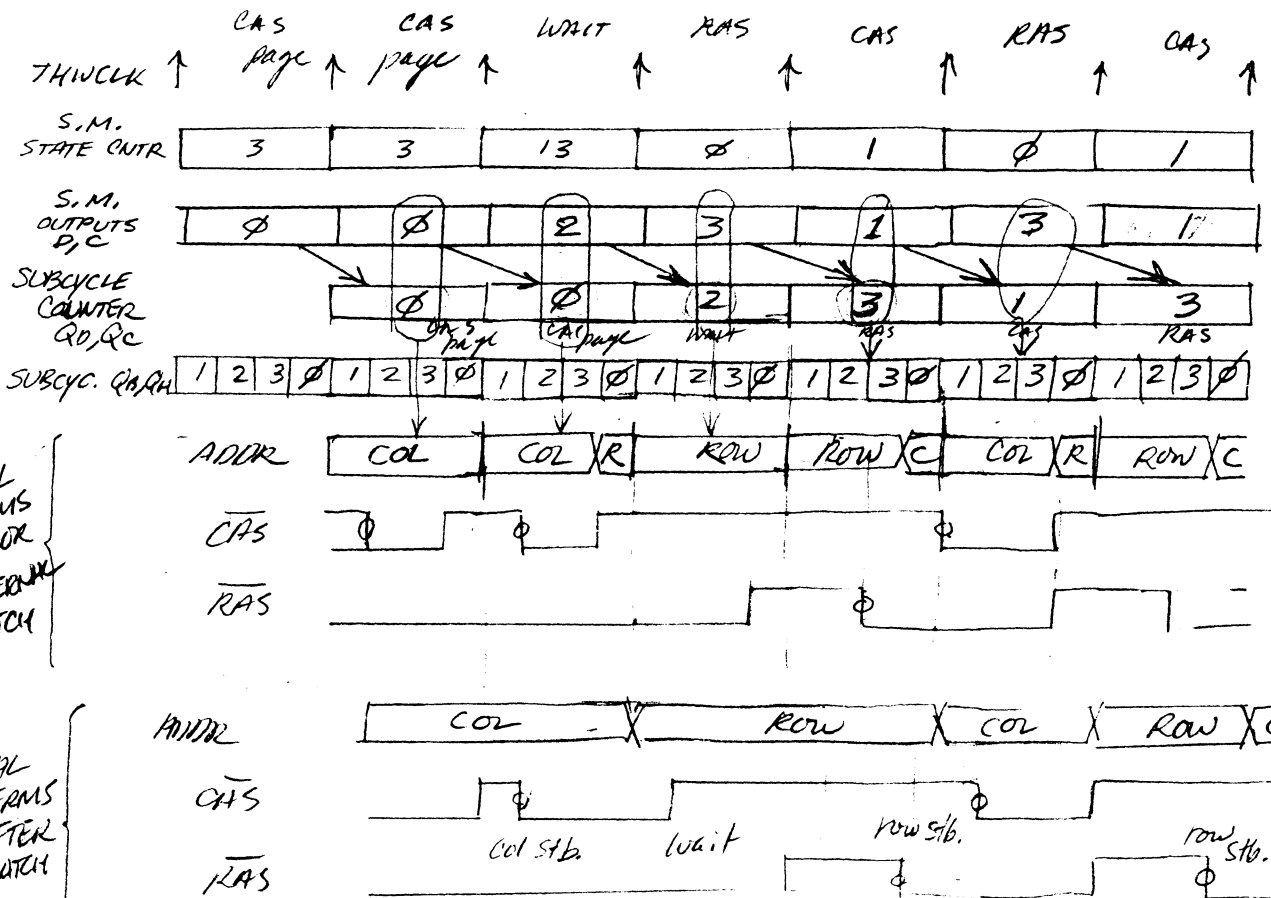 CAS page CAS page WAIT RAS CAS RAS CAS
THWCLK
S.M. STATE CNTR 3 3 13 Ø 1 Ø 1
S.M. OUTPUTS D,C Ø Ø 2 3 1 3 1
SUBCYCLE COUNTER QD,QC Ø Ø 2 3 1 3
CAS page CAS page WAIT RAS CAS RAS
SUBCYC. 1 2 3 Ø 1 2 3 Ø 1 2 3 Ø 1 2 3 Ø 1 2 3 Ø 1 2 3 Ø 1 2 3 Ø
ADDR COL COL R ROW ROW C COL R ROW C
CAS
RAS
ADDR COL ROW COL ROW C
CAS
col stb. wait row stb. row stb.
RAS